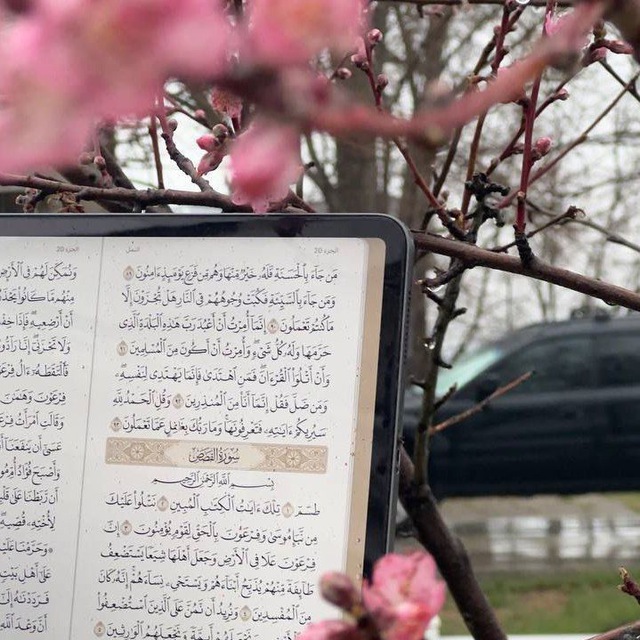 الجزء 20
النمل
مَن جَآءَ بِٱلْحَسَنَةِ فَلَهُۥ خَيْرٌ مِّنْهَا وَهُم مِّن فَزَعٍ يَوْمَئِذٍ ءَامِنُونَ ٨٩
وَمَن جَآءَ بِٱلسَّيِّئَةِ فَكُبَّتْ وُجُوهُهُمْ فِى ٱلنَّارِ هَلْ تُجْزَوْنَ إِلَّا
مَا كُنتُمْ تَعْمَلُونَ ٩٠ إِنَّمَآ أُمِرْتُ أَنْ أَعْبُدَ رَبَّ هَٰذِهِ ٱلْبَلْدَةِ ٱلَّذِى
حَرَّمَهَا وَلَهُۥ كُلُّ شَىْءٍ ۖ وَأُمِرْتُ أَنْ أَكُونَ مِنَ ٱلْمُسْلِمِينَ ٩١
وَأَنْ أَتْلُوَا۟ ٱلْقُرْءَانَ ۖ فَمَنِ ٱهْتَدَىٰ فَإِنَّمَا يَهْتَدِى لِنَفْسِهِۦ ۖ
وَمَن ضَلَّ فَقُلْ إِنَّمَآ أَنَا۠ مِنَ ٱلْمُنذِرِينَ ٩٢ وَقُلِ ٱلْحَمْدُ لِلَّهِ
سَيُرِيكُمْ ءَايَٰتِهِۦ فَتَعْرِفُونَهَا ۚ وَمَا رَبُّكَ بِغَٰفِلٍ عَمَّا تَعْمَلُونَ ٩٣
سُورَةُ القَصَصِ
بِسْمِ ٱللَّهِ ٱلرَّحْمَٰنِ ٱلرَّحِيمِ
طسٓمٓ ١ تِلْكَ ءَايَٰتُ ٱلْكِتَٰبِ ٱلْمُبِينِ ٢ نَتْلُوا۟ عَلَيْكَ
مِن نَّبَإِ مُوسَىٰ وَفِرْعَوْنَ بِٱلْحَقِّ لِقَوْمٍ يُؤْمِنُونَ ٣ إِنَّ
فِرْعَوْنَ عَلَا فِى ٱلْأَرْضِ وَجَعَلَ أَهْلَهَا شِيَعًا يَسْتَضْعِفُ
طَآئِفَةً مِّنْهُمْ يُذَبِّحُ أَبْنَآءَهُمْ وَيَسْتَحْىِۦ نِسَآءَهُمْ ۚ إِنَّهُۥ كَانَ
مِنَ ٱلْمُفْسِدِينَ ٤ وَنُرِيدُ أَن نَّمُنَّ عَلَى ٱلَّذِينَ ٱسْتُضْعِفُوا۟
فِى ٱلْأَرْضِ وَنَجْعَلَهُمْ أَئِمَّةً وَنَجْعَلَهُمُ ٱلْوَٰرِثِينَ ٥
الجزء 20
وَنُمَكِّنَ لَهُمْ فِى ٱلْأَرْضِ
مِنْهُم مَّا كَانُوا۟
أَنْ أَرْضِعِيهِ ۖ فَإِذَا
وَلَا تَحْزَنِىٓ ۖ إِنَّا
فَٱلْتَقَطَهُۥٓ ءَالُ
فِرْعَوْنَ وَهَٰمَٰنَ
وَقَالَتِ ٱمْرَأَتُ
عَسَىٰٓ أَن يَنفَعَنَآ
وَأَصْبَحَ فُؤَادُ أُمِّ
أَن رَّبَطْنَا عَلَىٰ
لِأُخْتِهِۦ قُصِّيهِ ۖ
وَحَرَّمْنَا عَلَيْهِ
عَلَىٰٓ أَهْلِ بَيْتٍ
فَرَدَدْنَٰهُ إِلَىٰٓ
أَنَّ وَعْدَ ٱللَّهِ